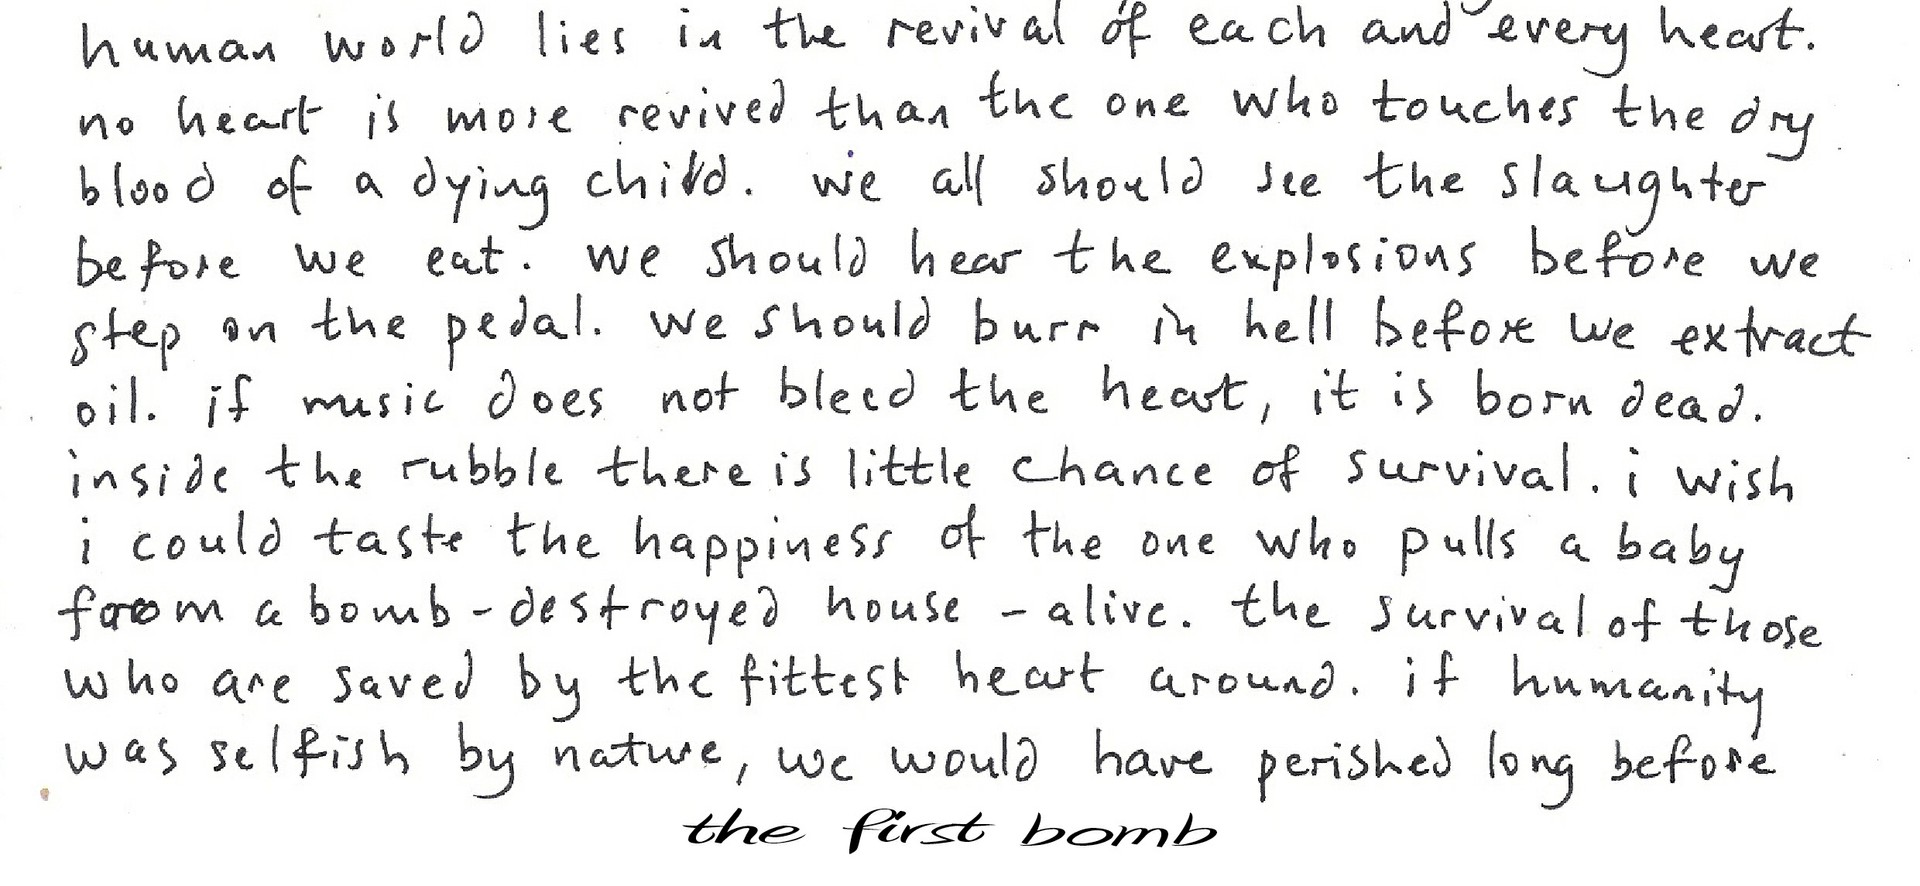 human world lies in the revival of each and every heart.
no heart is more revived than the one who touches the dry
blood of a dying child. we all should see the slaughter
before we eat. we should hear the explosions before we
step on the pedal. we should burn in hell before we extract
oil. if music does not bleed the heart, it is born dead.
inside the rubble there is little chance of survival. i wish
i could taste the happiness of the one who pulls a baby
from a bomb-destroyed house - alive. the survival of those
who are saved by the fittest heart around. if humanity
was selfish by nature, we would have perished long before
the first bomb